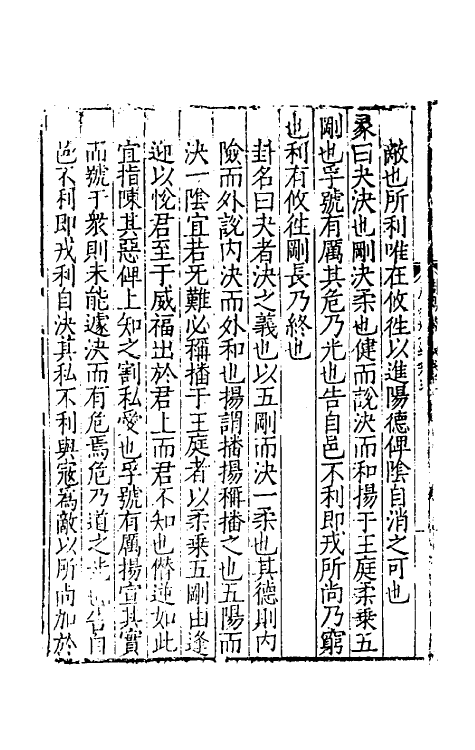 敵也所利唯在攸徃以進陽德俾陰自消之可也
彖曰夬決也剛決柔也健而說決而和揚于王庭柔乗五
剛也孚號有厲其危乃光也告自邑不利即戎所尚乃窮
也利有攸徃剛長乃終也
卦名曰夬者決之義也以五剛而決一柔也其德則内
險而外說内決而外和也揚謂播揚稱播之也五陽而
決一陰宜若旡難必稱播于王庭者以柔乗五剛由逢
迎以恱君至于威福出於君上而君不知也僭逆如此
宜指陳其惡俾上知之割私愛也孚號有厲揚宣其實
而號于衆則未能遽決而有危焉危乃道之也告自
邑不利即戎利自決其私不利與寇為敵以所尚加於